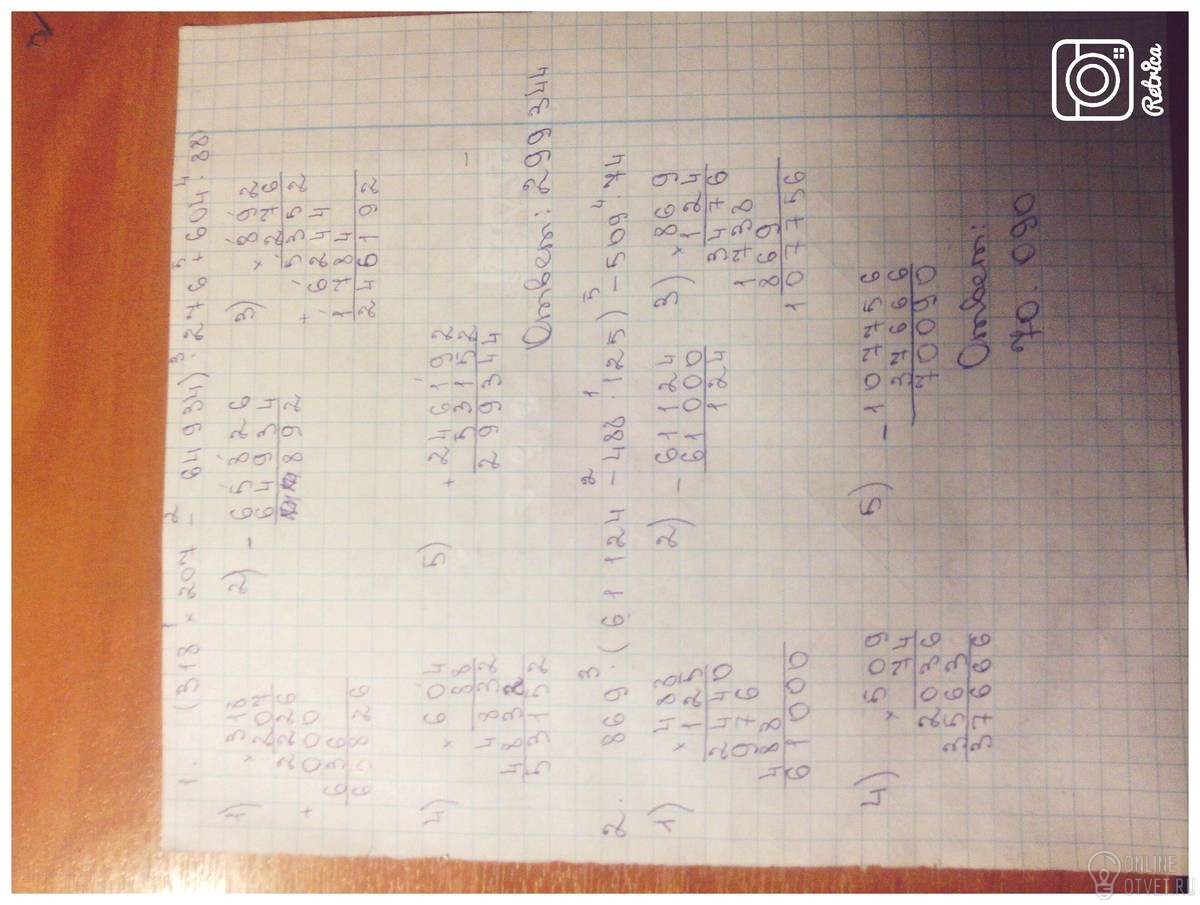 1. (318 ¹× 207 ²- 64934) ³· 276 ⁵+ 604 ⁴· 88
1) × 318
207
2226
+ 000
636
65826
2) - 65826
64934
892
3) × 892
276
5352
+ 6244
1784
246192
4) × 604
88
4832
4832
53152
5) + 246192
53152
299344
Ответ: 299 344
2. 869 ³· (61 124 ²- 488 ¹· 125) ⁵- 509 ⁴· 74
1) × 488
125
2440
976
488
61000
2) - 61124
61000
124
3) × 869
124
3476
1738
869
107756
4) × 509
74
2036
3563
37666
5) - 107756
37666
70090
Ответ:
70.090
Retrica
ONLINE
OTVET.RU